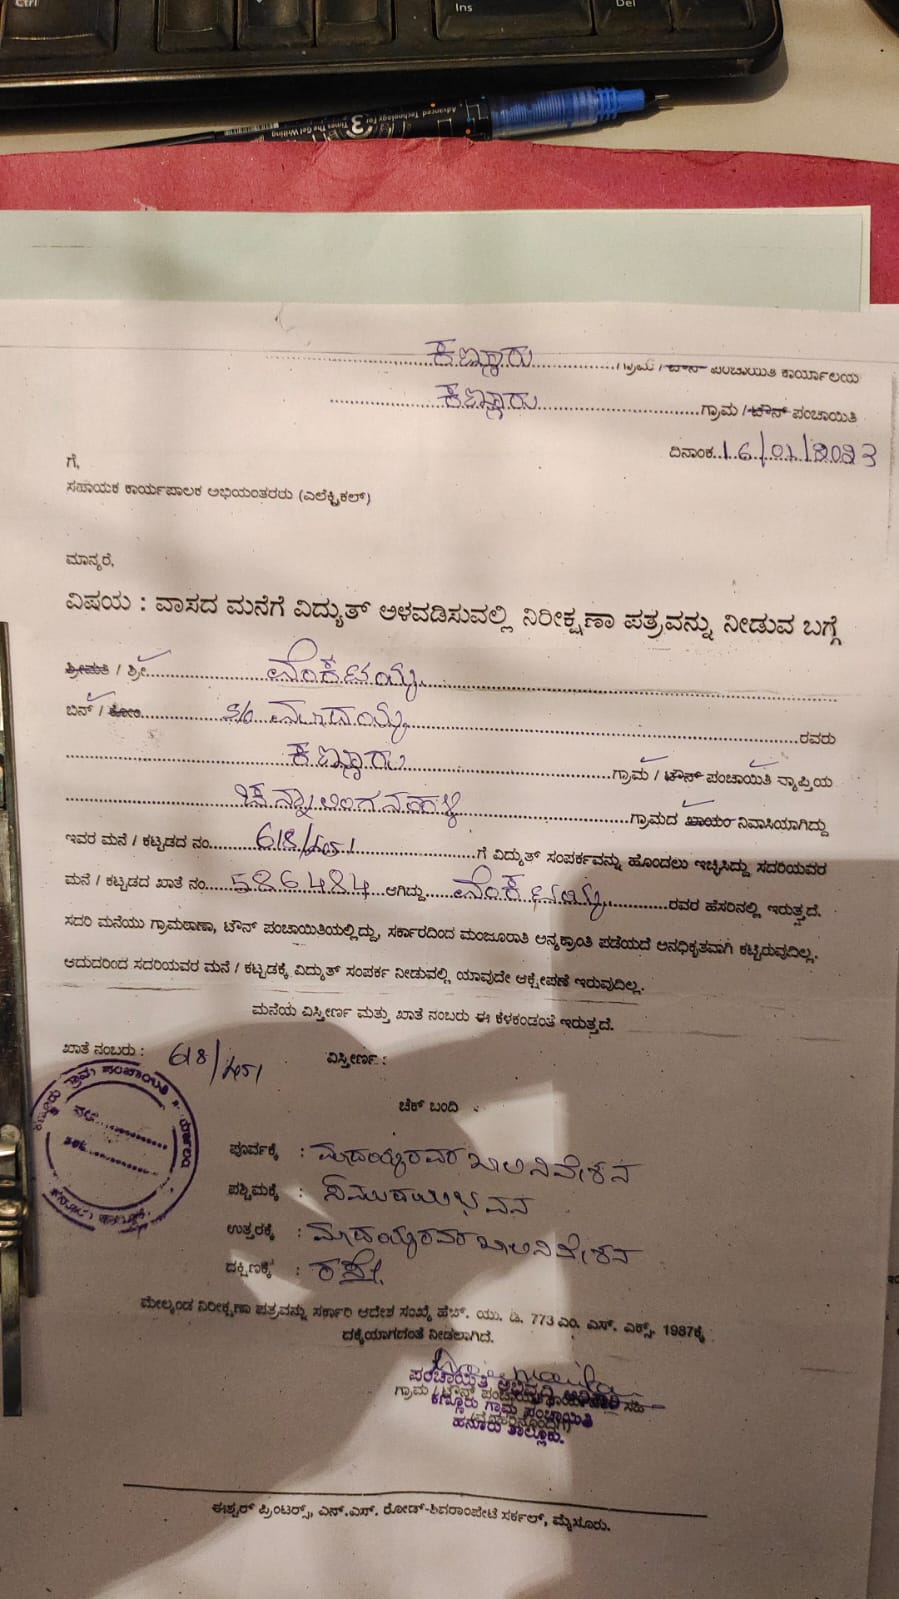 Ctrl
Ins
Del
Advanced Technology For
Times The Gel Writing
3
ಕಣ್ಣೂರು ಗ್ರಾಮ / ಟೌನ್ ಪಂಚಾಯಿತಿ ಕಾರ್ಯಾಲಯ
ಕಣ್ಣೂರು ಗ್ರಾಮ / ಟೌನ್ ಪಂಚಾಯಿತಿ
ದಿನಾಂಕ 16/01/2023
ಗೆ,
ಸಹಾಯಕ ಕಾರ್ಯಪಾಲಕ ಅಭಿಯಂತರರು (ಎಲೆಕ್ಟ್ರಿಕಲ್)
ಮಾನ್ಯರೆ,
ವಿಷಯ : ವಾಸದ ಮನೆಗೆ ವಿದ್ಯುತ್ ಅಳವಡಿಸುವಲ್ಲಿ ನಿರೀಕ್ಷಣಾ ಪತ್ರವನ್ನು ನೀಡುವ ಬಗ್ಗೆ
ಶ್ರೀಮತಿ / ಶ್ರೀ ವೆಂಕಟಯ್ಯ
ಬಿನ್ / ಕೋಂ S/o ಮಾದಯ್ಯ ರವರು
ಕಣ್ಣೂರು ಗ್ರಾಮ / ಟೌನ್ ಪಂಚಾಯಿತಿ ವ್ಯಾಪ್ತಿಯ
ಚಿನ್ನಾಲಿಂಗನಹಳ್ಳಿ ಗ್ರಾಮದ ಖಾಯಂ ನಿವಾಸಿಯಾಗಿದ್ದು
ಇವರ ಮನೆ / ಕಟ್ಟಡದ ನಂ. 618/451 ಗೆ ವಿದ್ಯುತ್ ಸಂಪರ್ಕವನ್ನು ಹೊಂದಲು ಇಚ್ಛಿಸಿದ್ದು ಸದರಿಯವರ
ಮನೆ / ಕಟ್ಟಡದ ಖಾತೆ ನಂ. 586484 ಆಗಿದ್ದು ವೆಂಕಟಯ್ಯ ರವರ ಹೆಸರಿನಲ್ಲಿ ಇರುತ್ತದೆ.
ಸದರಿ ಮನೆಯು ಗ್ರಾಮಠಾಣಾ, ಟೌನ್ ಪಂಚಾಯಿತಿಯಲ್ಲಿದ್ದು, ಸರ್ಕಾರದಿಂದ ಮಂಜೂರಾತಿ ಅನ್ಯಕ್ರಾಂತಿ ಪಡೆಯದೆ ಅನಧಿಕೃತವಾಗಿ ಕಟ್ಟಿರುವುದಿಲ್ಲ.
ಆದುದರಿಂದ ಸದರಿಯವರ ಮನೆ / ಕಟ್ಟಡಕ್ಕೆ ವಿದ್ಯುತ್ ಸಂಪರ್ಕ ನೀಡುವಲ್ಲಿ ಯಾವುದೇ ಆಕ್ಷೇಪಣೆ ಇರುವುದಿಲ್ಲ.
ಮನೆಯ ವಿಸ್ತೀರ್ಣ ಮತ್ತು ಖಾತೆ ನಂಬರು ಈ ಕೆಳಕಂಡಂತೆ ಇರುತ್ತದೆ.
ಖಾತೆ ನಂಬರು : 618/451 ವಿಸ್ತೀರ್ಣ :
ಚೆಕ್ ಬಂದಿ
ಕಣ್ಣೂರು ಗ್ರಾಮ ಪಂಚಾಯಿತಿ
ಪೂರ್ವಕ್ಕೆ : ಮಾದಯ್ಯರವರ ಖಾಲಿ ನಿವೇಶನ
ಪಶ್ಚಿಮಕ್ಕೆ : ಸಮುದಾಯಭವನ
ಉತ್ತರಕ್ಕೆ : ಮಾದಯ್ಯರವರ ಖಾಲಿ ನಿವೇಶನ
ದಕ್ಷಿಣಕ್ಕೆ : ರಸ್ತೆ
ಮೇಲ್ಕಂಡ ನಿರೀಕ್ಷಣಾ ಪತ್ರವನ್ನು ಸರ್ಕಾರಿ ಆದೇಶ ಸಂಖ್ಯೆ ಹೆಚ್. ಯು. ಡಿ. 773 ಎಂ. ಎಸ್. ಎಕ್ಸ್. 1987ಕ್ಕೆ
ದಕ್ಕೆಯಾಗದಂತೆ ನೀಡಲಾಗಿದೆ.
ಪಂಚಾಯಿತಿ ಅಭಿವೃದ್ಧಿ ಅಧಿಕಾರಿ
ಕಣ್ಣೂರು ಗ್ರಾಮ ಪಂಚಾಯಿತಿ
ಹನೂರು ತಾಲ್ಲೂಕು.
ಈಶ್ವರ್ ಪ್ರಿಂಟರ್ಸ್, ಎನ್.ಎಸ್. ರೋಡ್-ಶಿವರಾಂಪೇಟೆ ಸರ್ಕಲ್, ಮೈಸೂರು.